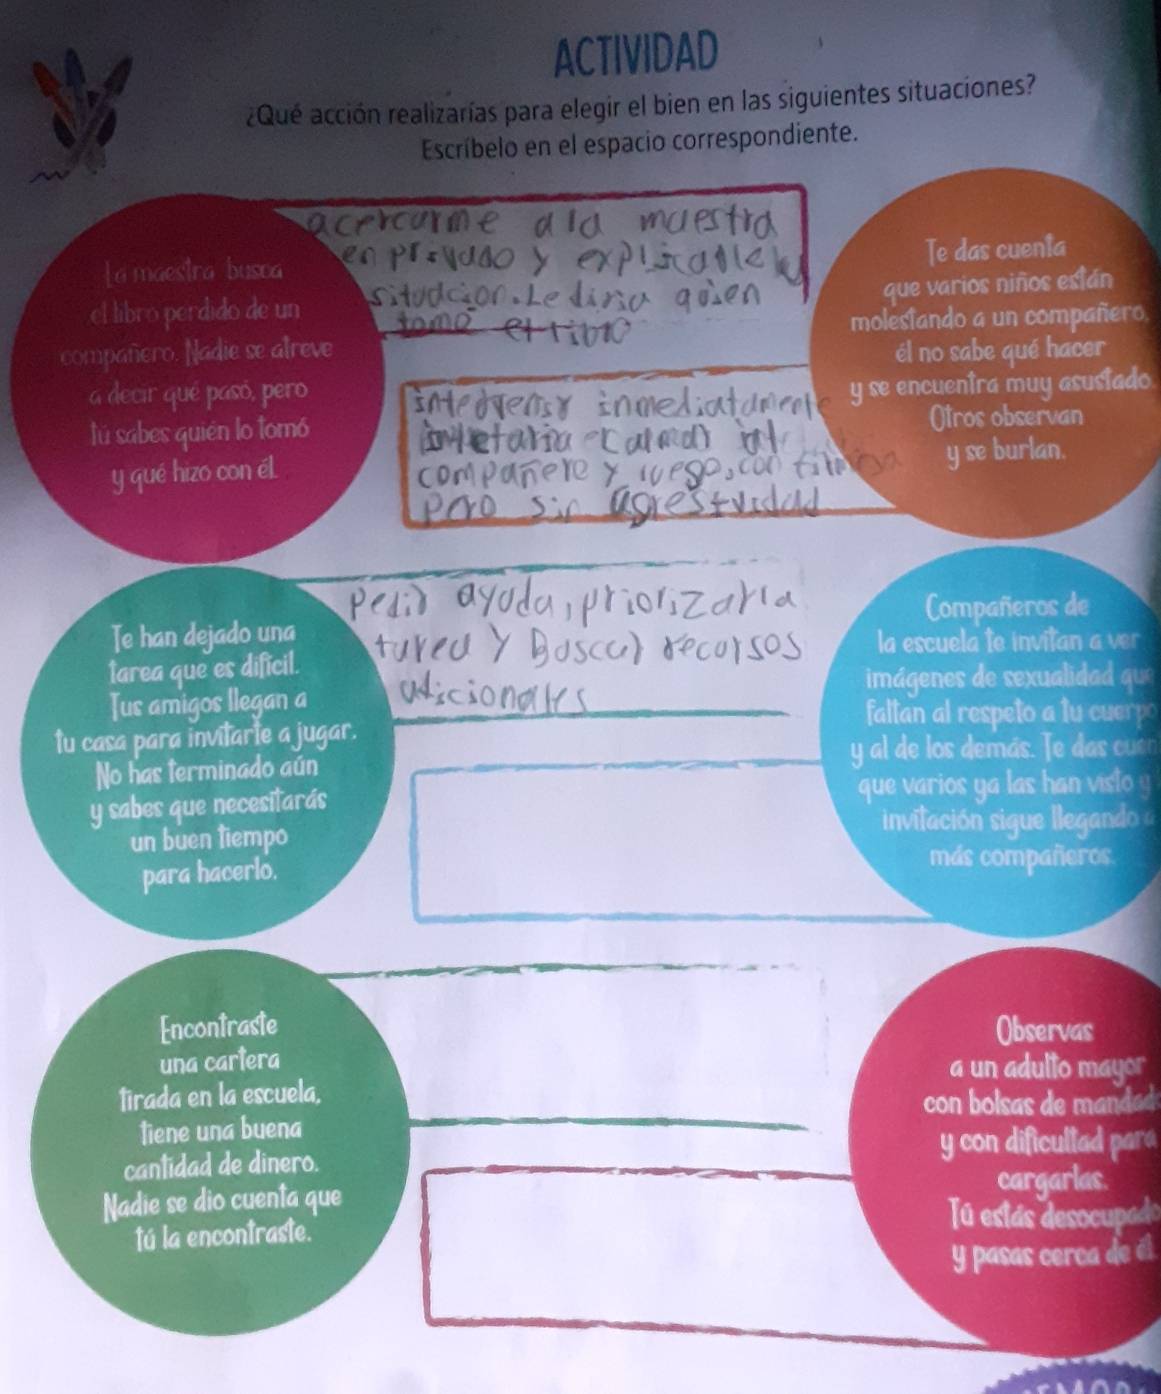 ACTIVIDAD
¿Qué acción realizarías para elegir el bien en las siguientes situaciones?
Escríbelo en el espacio correspondiente.
La maestra busca
el libro perdido de un
compañero. Nadie se atreve
a decir qué pasó, pero
tú sabes quién lo tomó
y qué hizo con él.
acercarme a la maestra
en privado y explicarle
situación. Le diria quien
tomo el libro
Te das cuenta
que varios niños están
molestando a un compañero,
él no sabe qué hacer
y se encuentra muy asustado.
Otros observan
y se burlan.
inmediatamente
calmar
compañero y luego, con
pero sin
Te han dejado una
tarea que es difícil.
Tus amigos llegan a
tu casa para invitarte a jugar.
No has terminado aún
y sabes que necesitarás
un buen tiempo
para hacerlo.
pedir ayuda, priorizaria
tarea y Buscar recursos
adicionales
Compañeros de
la escuela te invitan a ver
imágenes de sexualidad que
faltan al respeto a tu cuerpo
y al de los demás. Te das cuen
que varios ya las han visto y
invitación sigue llegando a
más compañeros.
Encontraste
una cartera
tirada en la escuela,
tiene una buena
cantidad de dinero.
Nadie se dio cuenta que
tú la encontraste.
Observas
a un adulto mayor
con bolsas de mandado
y con dificultad para
cargarlas.
Tú estás desocupado
y pasas cerca de él.